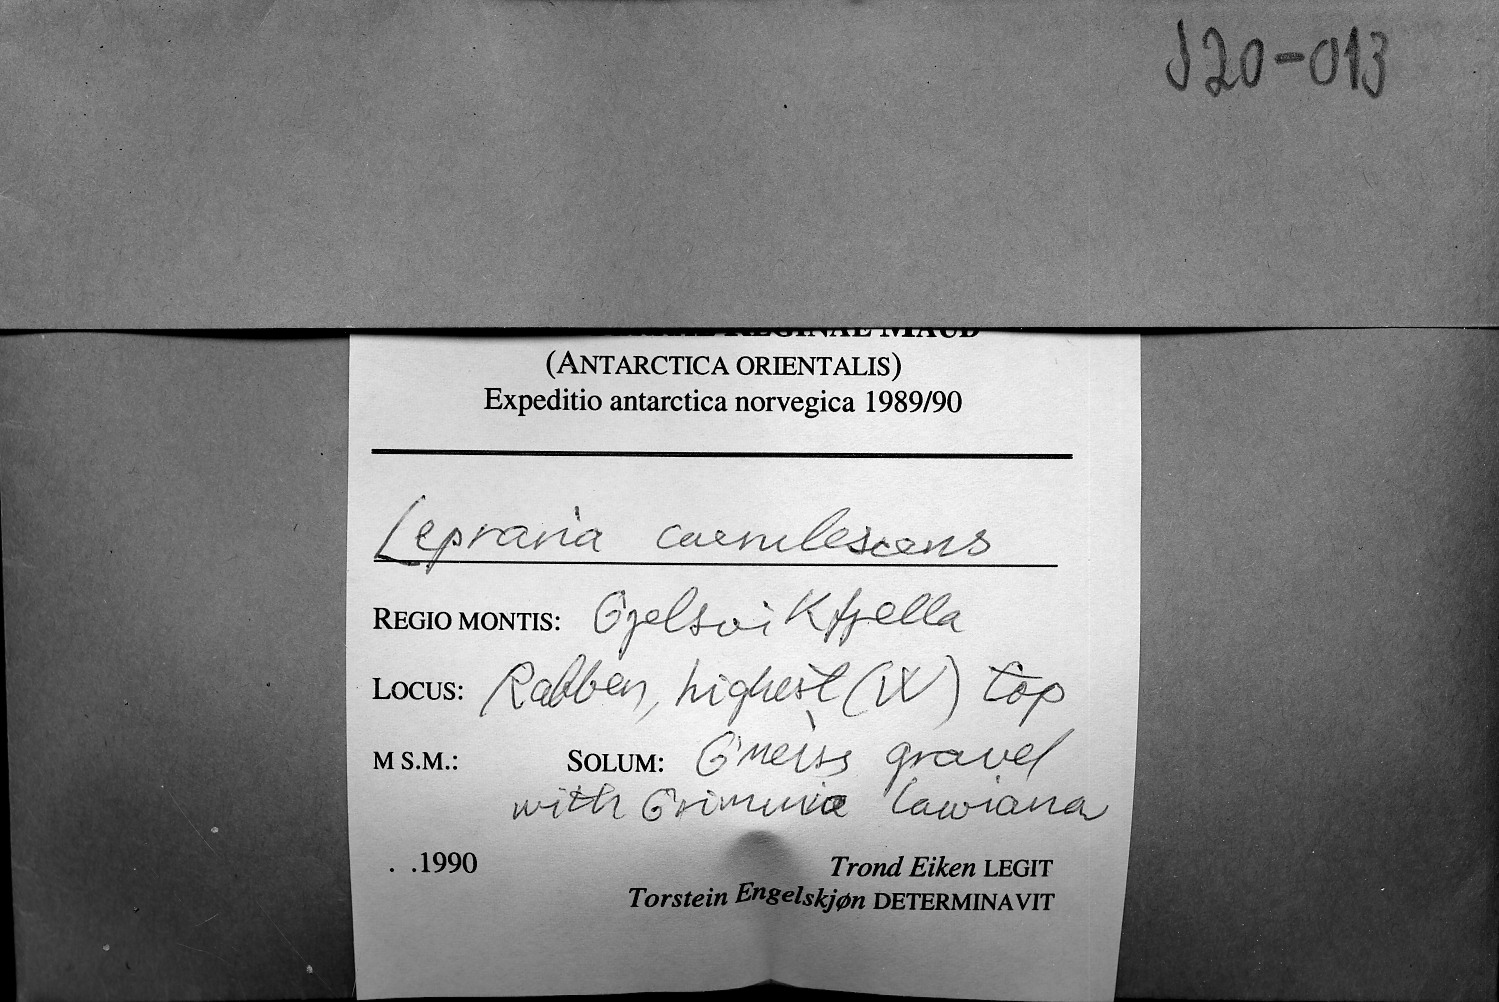 J20-013
REGINAE MAUD
(ANTARCTICA ORIENTALIS)
Expeditio antarctica norvegica 1989/90
Lepraria caerulescens
REGIO MONTIS: Gjelsvikfjella
LOCUS: Rabben, highest (W) top
M S.M.: SOLUM: Gneiss gravel
with Grimmia lawiana
. .1990 Trond Eiken LEGIT
Torstein Engelskjøn DETERMINAVIT